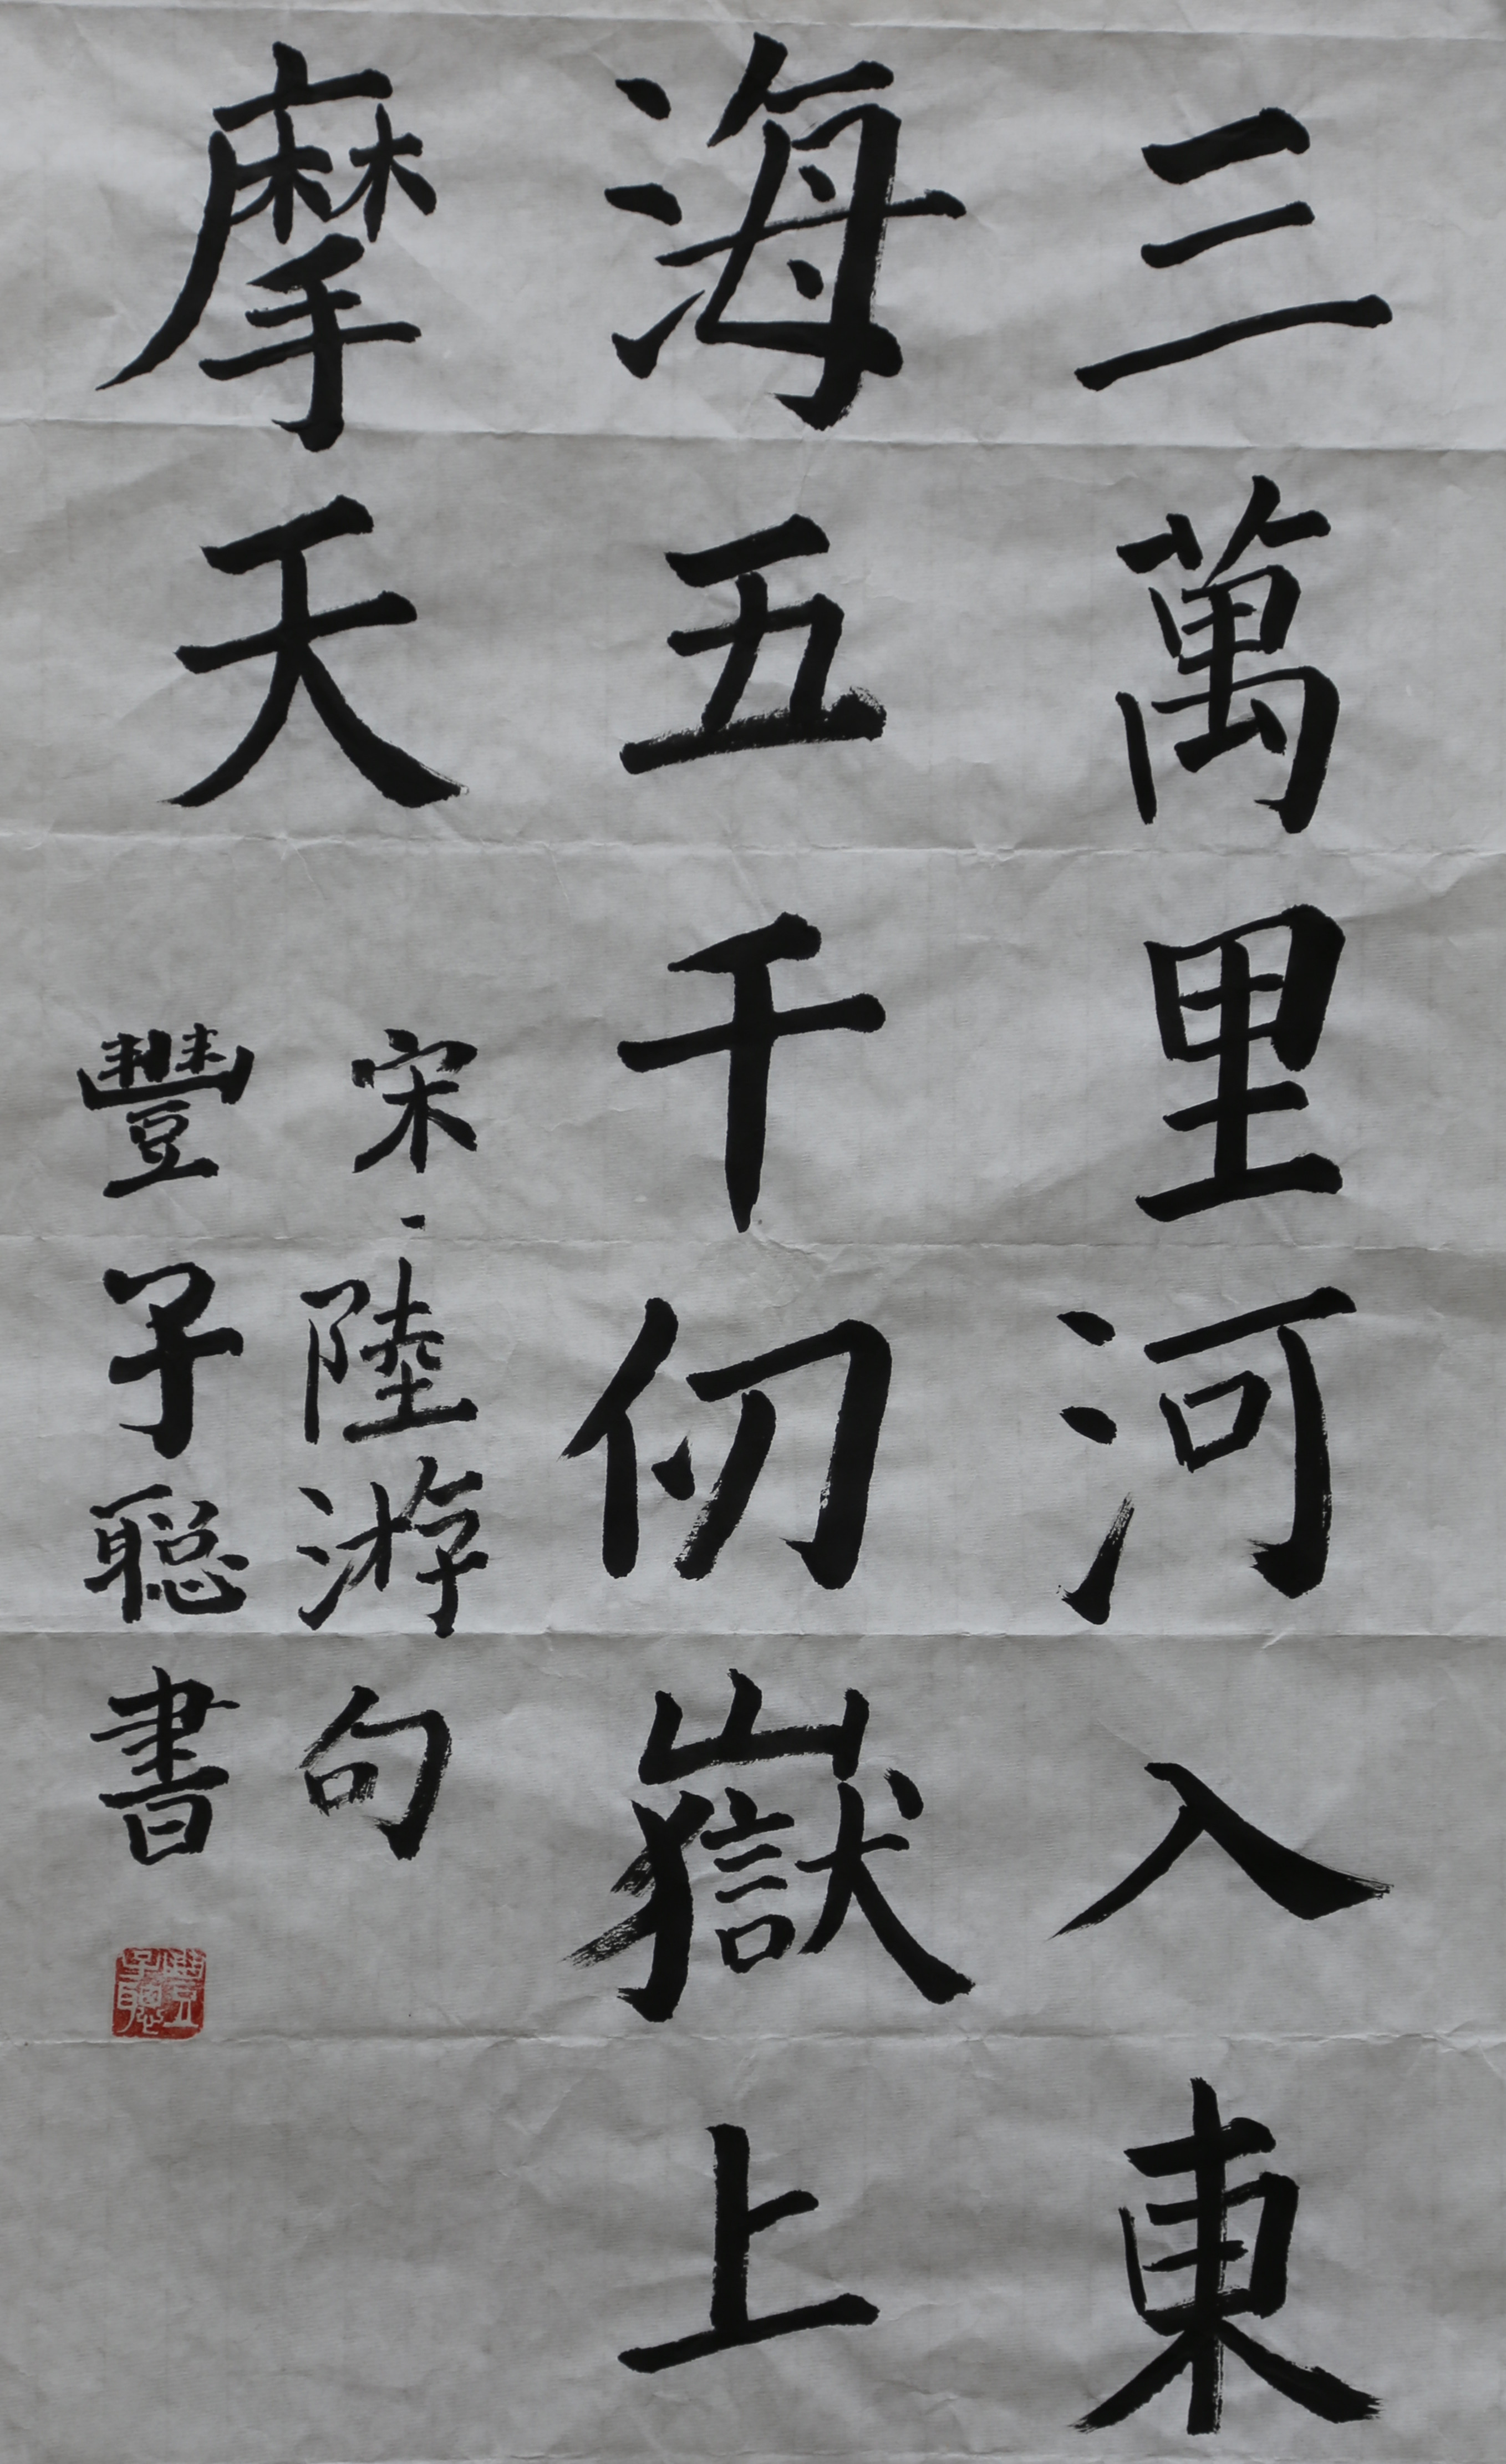 三萬里河入東
海五千仞嶽上
摩天
宋·陸游句
豐子聰書
豐子聰